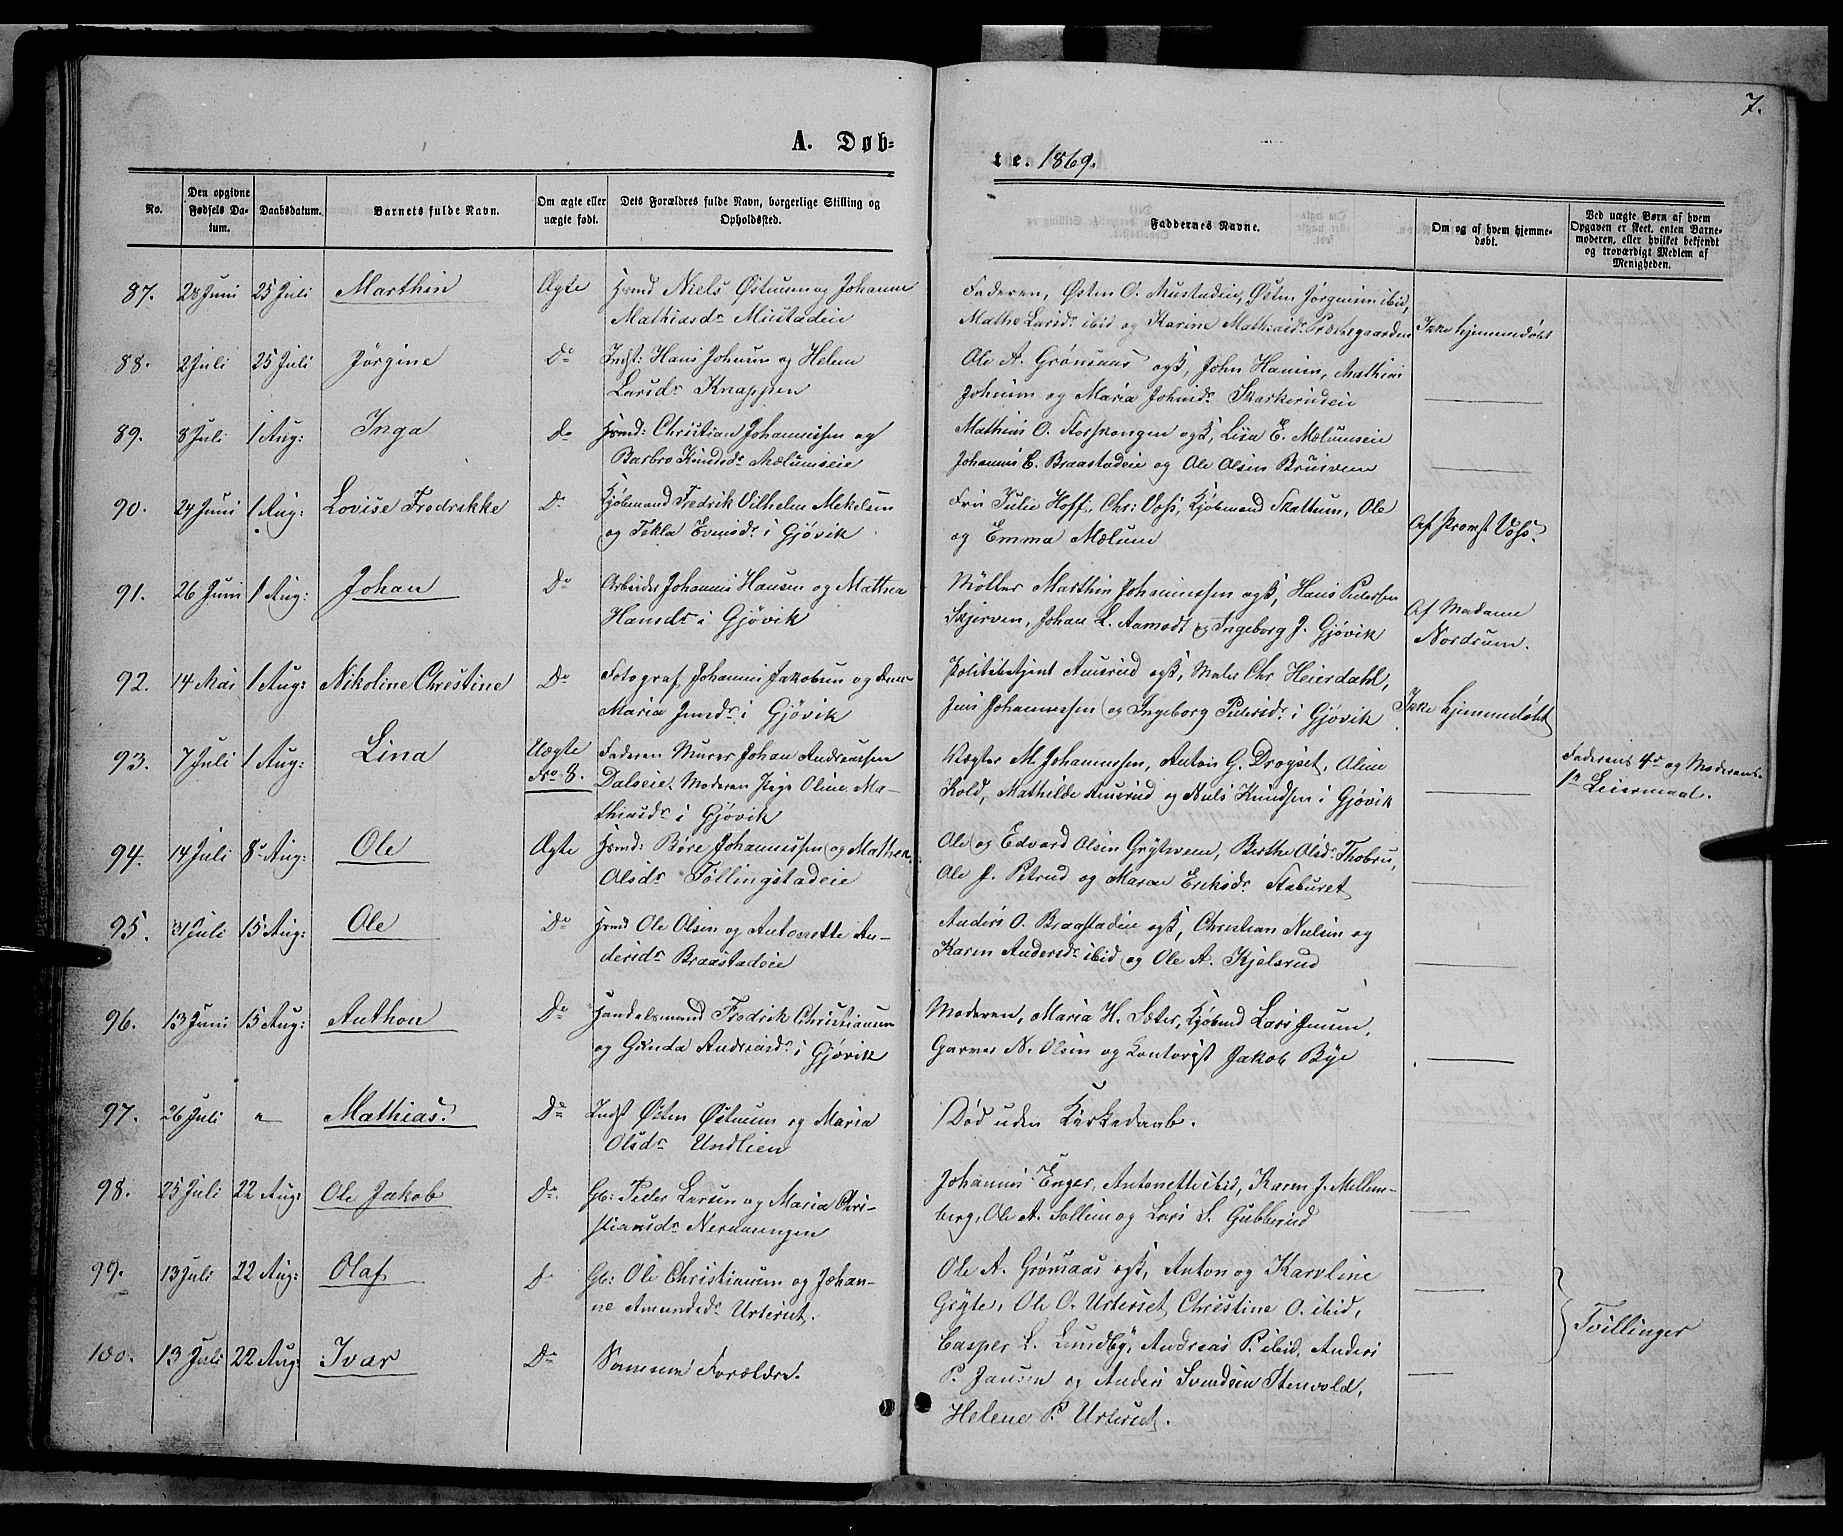 7.
A. Døb=
te. 1869.
No.
Den opgivne Fødsels Datum.
Daabsdatum.
Barnets fulde Navn.
Om ægte eller uægte født.
Dets Forældres fulde Navn, borgerlige Stilling og Opholdssted.
Faddernes Navne.
Om og af hvem hjemmedøbt.
Ved uægte Børn af hvem Opgaven er skeet, enten Barnemoderen, eller hvilket bekjendt og troværdigt Medlem af Menigheden.
87. 28 Juni 25 Juli Marthin Ægte Hsmd Niels Østensen og Johanne
Mathiasdr Mustadeie
Faderen, Østen O. Mustadeie, Østen Jørgensen ibid,
Mathe Larsdr ibid og Karine Mathiasdr Præstegaarden
Ikke hjemmedøbt
88. 2 Juli 25 Juli Jørgine Do Indst: Hans Johnsen og Helene
Larsdr Knappen
Ole A. Grønsaas ogk, John Hansen, Mathias
Johnsen og Maria Johnsdr Skarkerudeie
89. 8 Juli 1 Aug: Inga do Hsmd: Christian Johannessen og
Barbro Knudsdr Mælumseie
Mathias O. Storskougen ogk, Lisa E. Mælumseie
Johannes E. Braastadeie og Ole Olsen Brusveen
90. 24 Juni 1 Aug: Lovise Fredrikke Do Kjøbmand Fredrik Vilhelm Mekelsen
og Tekla Evensdr i Gjøvik
Frk Julie Hoff, Chr: Voss, Kjøbmand Skattum, Ole
og Emma Mælum
Af Provst Voss.
91. 26 Juni 1 Aug: Johan Do Arbeider Johannes Hansen og Mathea
Hansdr i Gjøvik
Møller Marthin Johannessen ogk, Hans Pedersen
Skjerven, Johan L. Aamodt og Ingeborg J. Gjøvik
Af Madame
Nordrum.
92. 14 Mai 1 Aug: Nikoline Chrestine Do Fotograf Johannes Jakobsen og
Maria Jensdr i Gjøvik
Politibetjent Amsrud ogk, Maler Chr Heierdahl,
Jens Johannessen og Ingeborg Pedersdr i Gjøvik
Ikke hjemmedøbt
93. 7 Juli 1 Aug: Lina Uægte
No 8.
Faderen Murer Johan Andreassen
Dalseie. Moderen Pige Oline Ma-
thiasdr i Gjøvik
M. Johannessen, Anton G. Drogset, Oline
Kold, Mathilde Amsrud og Niels Knudsen i Gjøvik
Faderens 4de og Moderens
1ste Leiermaal.
94. 14 Juli 8 Aug: Ole Ægte Hsmd: Børe Johannessen og Mathea
Olsdr Føllingstadeie
Ole og Edvard Olsen Grytveene, Berthe Olsdr Thobru,
Ole J. Petrud og Maren Eriksdr Staburet
95. 31 Juli 15 Aug: Ole Do Hsmd Ole Olsen og Antonette An-
dersdr Braastadeie
Anders O. Braastadeie ogk, Christian Nielsen og
Karen Andersdr ibid og Ole A. Kjelsrud
96. 13 Juni 15 Aug: Anthon Do Handelsmand Fredrik Christiansen
og Gunda Andreasdr i Gjøvik
Moderen, Maria H. Sæter, Kjøbmd Lars Jensen,
Garver N. Olsen og Kontorist Jakob Bye
97. 26 Juli " Mathias. Do Indst Østen Østensen og Maria
Olsdr Undlien
Død uden Kirkedaab.
98. 25 Juli 22 Aug: Ole Jakob Do Gb: Peder Larsen og Maria Chri-
stiansdr Nerdrungen
Johannes Enger, Antonette ibid, Karen J. Mellem-
berg, Ole A. Sollien og Lars L. Gubberud
99. 13 Juli 22 Aug: Olaf Do Gb: Ole Christiansen og Johan-
ne Amundsdr Urterset.
Ole A. Grønsaas ogk, Anton og Karoline
Gryte, Ole O. Urterset, Christine O. ibid,
100. 13 Juli 22 Aug: Ivar Do Samme Forældre.
Casper L. Lundby, Andreas P. ibid, Anders
P. Jansen og Anders Svendsen Stenvold,
Helene P. Urterset.
Tvillinger